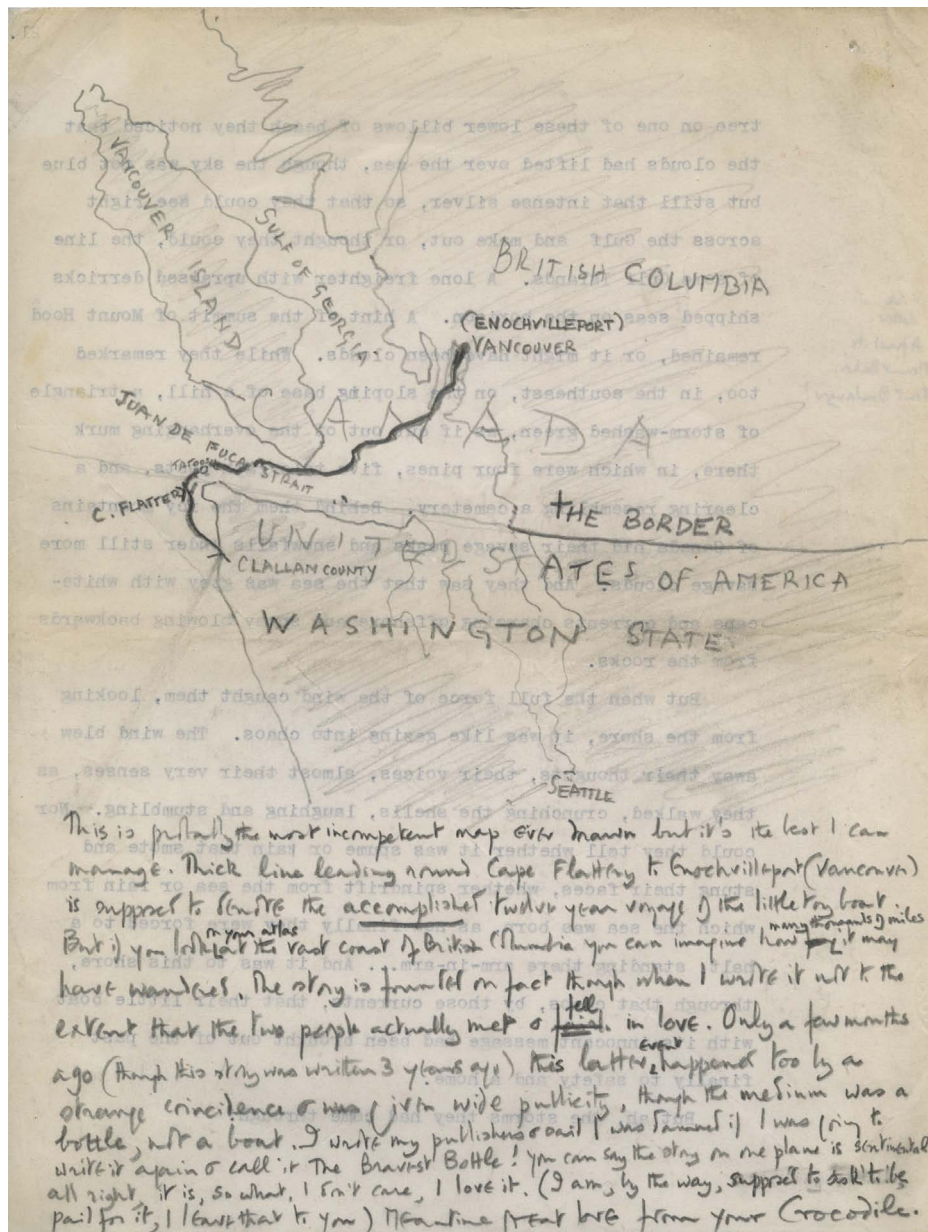 VANCOUVER ISLAND
GULF OF GEORGIA
BRITISH COLUMBIA
(ENOCHVILLEPORT)
VANCOUVER
CANADA
JUAN DE FUCA STRAIT
TATOOSH
C. FLATTERY
THE BORDER
UNITED STATES OF AMERICA
CLALLAN COUNTY
WASHINGTON STATE
SEATTLE
This is probably the most incompetent map ever drawn but it's the best I can
manage. Thick line leading round Cape Flattery to Enochvilleport (Vancouver)
is supposed to denote the accomplished twelve year voyage of the little toy boat.
But if you look on your atlas at the vast coast of British Columbia you can imagine how many thousands of miles it may
have wandered. The story is founded on fact though when I wrote it not to the
extent that the two people actually met & fell in love. Only a few months
ago (though this story was written 3 years ago) this latter event happened too by a
strange coincidence & was given wide publicity, though the medium was a
bottle, not a boat. I wrote my publishers & said I was damned if I was going to
write it again & call it The Bravest Bottle! You can say the story on one plane is sentimental
all right, it is, so what, I don't care, I love it. (I am, by the way, supposed to ask to be
paid for it, I leave that to you) Meantime great love from your Crocodile.